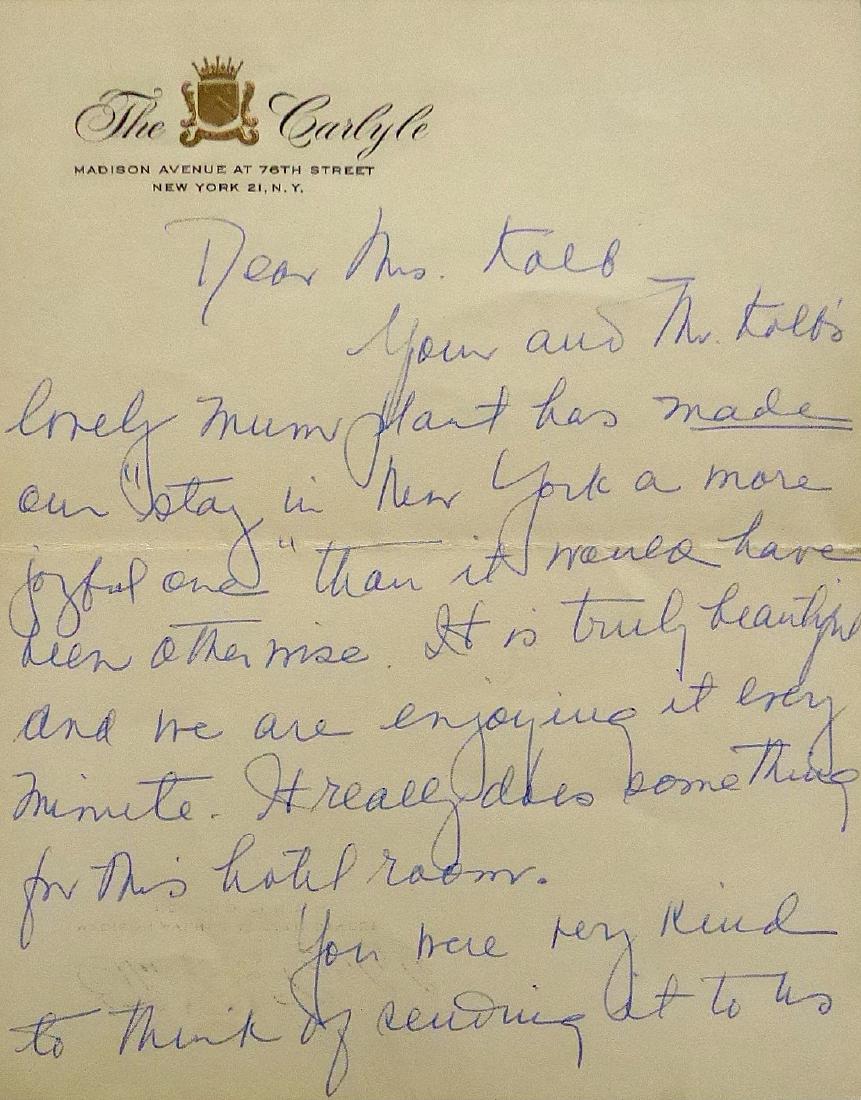 The Carlyle
MADISON AVENUE AT 76TH STREET
NEW YORK 21, N.Y.
Dear Mrs. Kolb
Your and Mr. Kolb's
lovely mum plant has made
our "stay in New York a more
joyful one" than it would have
been otherwise. It is truly beautiful
and we are enjoying it every
minute. It really does something
for this hotel room.
You were very kind
to think of sending it to us